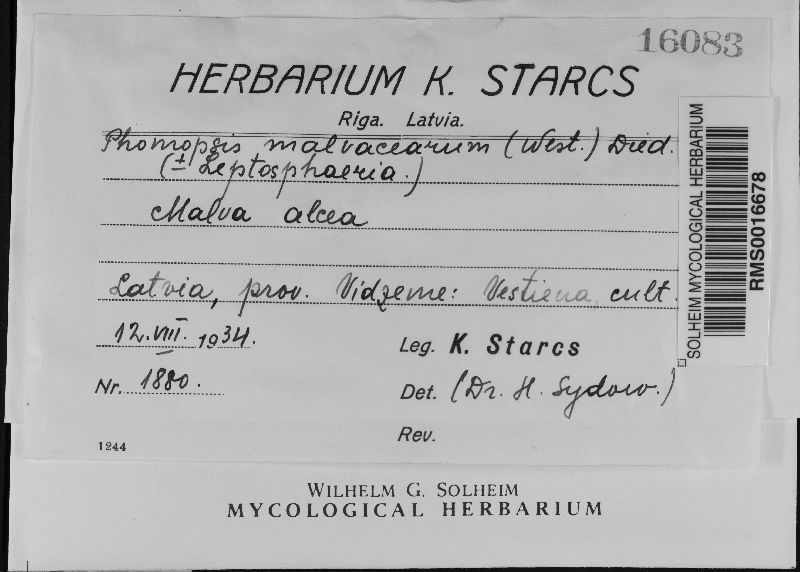 16083
HERBARIUM K. STARCS
Riga. Latvia.
Phomopsis malvacearum (West.) Died.
(± Leptosphaeria.)
Malva alcea
Latvia, prov. Vidzeme: Vestiena, cult.
12.VIII. 1934.
Leg. K. Starcs
Nr. 1880.
Det. (Dr. H. Sydow.)
Rev.
1244
SOLHEIM MYCOLOGICAL HERBARIUM
RMS0016678
WILHELM G. SOLHEIM
MYCOLOGICAL HERBARIUM